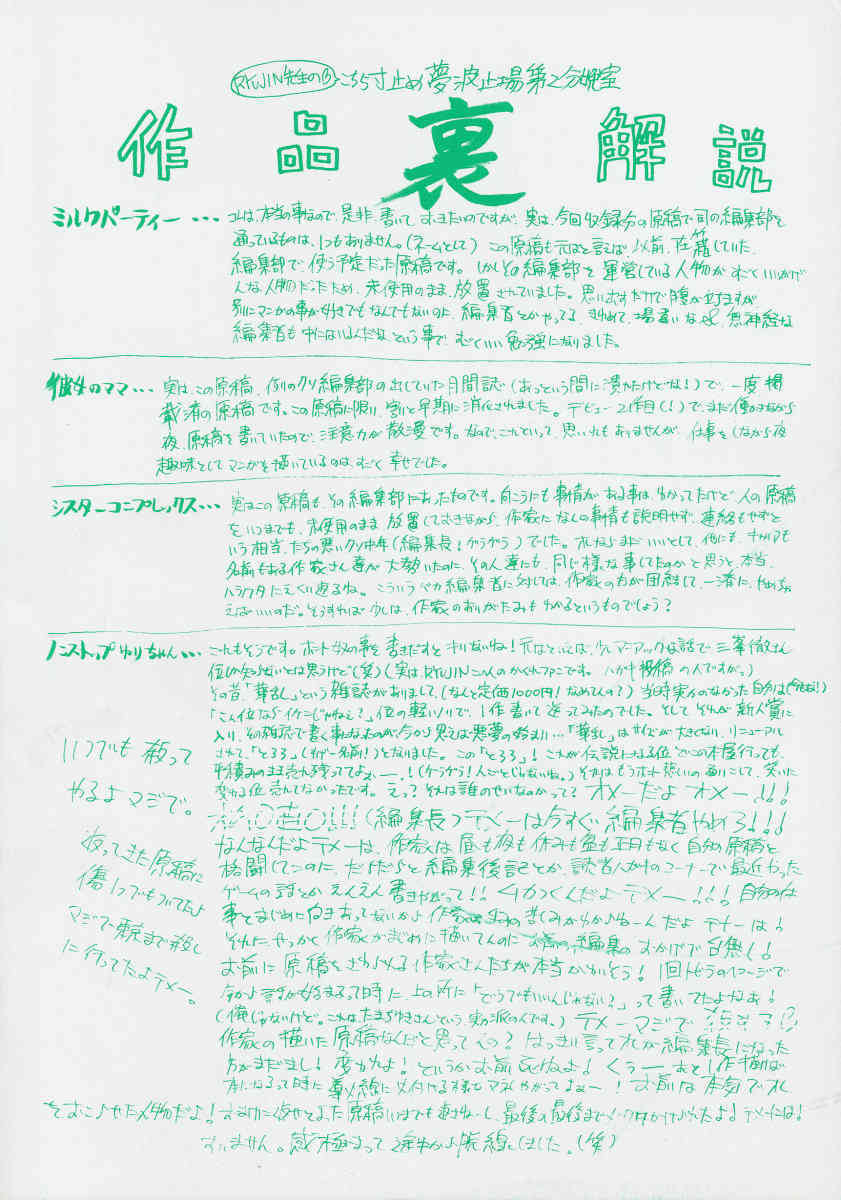 RYUJIN先生の
こちら寸止め夢波止場第2分娩室
作品裏解説
ミルクパーティー・・・
コレは、本当の事なので、是非、書いて、おきたいのですが、実は、今回収録分の原稿で司の編集部を
通っているものは、1つもありません。(ネームとして) この原稿も元はと言えば、以前、在籍していた、
編集部で、使う予定だった原稿です。しかしその編集部を運営している人物がすごくいいかげ
んな人物だったため、未使用のまま、放置されていました。思い出すだけで腹が立ちますが
別にマンガの事が好きでもなんでもないのに、編集者とかやってる、きわめて、場違いな&無神経な
編集者も中にはいるんだな、という事で、すごくいい勉強になりました。
彼女のママ・・・
実は、この原稿、例のクソ編集部の出していた月間誌(あっという間に潰れたけどな!)で、一度掲
載済の原稿です。この原稿に限り、割と早期に消化されました。デビュー2作目(!)で、まだ働きながら
夜、原稿を書いていたので、注意力が散漫です。なので、これといって、思い入れもありませんが、仕事をしながら夜
趣味としてマンガを描いているのは、すごく幸せでした。
シスターコンプレックス・・・
実はこの原稿も、その編集部にあったものです。向こうにも事情がある事は、わかってたけど、人の原稿
をいつまでも、未使用のまま放置しておきながら、作家になんの事情も説明せず、連絡もせずと
いう相当、たちの悪いクソ中年(編集長!ゲラゲラ)でした。オレならまだいいとして、他にも、キャリアも
名前もある作家さん達が大勢いたのに、その人達にも、同じ様な事してたのかと思うと、本当、
ハラワタにえくり返るね。こういうバカ編集者に対しては、作家の方が団結して、一斉に、やめちゃ
えばいいのだ。そうすれば少しは、作家のありがたみもわかるというものでしょう?
ノンストップゆりちゃん・・・
これもそうです。ホント奴の事を書きだすとキリないね!元はといえば、少しマニアックな話で三峯徹さん
位しか知らないとは思うけど(笑)(実は、RYUJINこの人のかくれファンです。ハガキ投稿の人ですが。)
その昔「華乱」という雑誌がありまして、(なんと定価1000円!なめてんの?)当時実力のなかった自分は(今もだ!)
「こん位ならイケんじゃねぇ?」位の軽いノリで、1作書いて送ってみたのでした。そしてそれが新人賞に
入り、その雑誌で書く事になったのが今から思えば悪夢の始まり…「華乱」はサイズが大きくなり、リニューアル
されて、「とろろ」(すげー名前!)となりました。この「とろろ」!これが伝説になる位どこの本屋行っても、
平積みのまま売れ残っててよぉー、!(ゲラゲラ!人ごとじゃないね。)それはもうホント悲しいの通りこして、笑いに
変わる位売れてなかったです。えっ?それは誰のせいなのかって?オメーだよオメー!!!
(編集長)テメーは今すぐ編集者やめろ!!!
なんなんだよテメーは、作家は昼も夜も休みも盆も正月もなく自分の原稿と
格闘してんのに、だらだらと編集後記とか、読者ハガキのコーナーで最近やった
ゲームの話とかえんえん書きやがって!!ムカつくんだよテメー!!!自分の仕
事とまじめに向きあってないから作家の苦しみがわからねーんだよテメーは!
それに、せっかく作家がまじめに描いてんのにお前の編集のおかげで台無し!
お前に原稿をさわられる作家さんたちが本当かわいそう!1回トビラのイメージで
今から話が始まるって時に、上の所に「どうでもいいんじゃない?」って書いてたよなお!
(俺じゃないけど。これはたまちゆきさんという実力派の人です。)テメーマジで
作家の描いた原稿なんだと思ってんの?はっきり言ってオレが編集長になった
方がまだまし!変われよ!というかお前死ねよ!くぅーあと1作描けば
本になるって時に
お前は本気でオレ
をおこらせた人物だよ!
最後の最後まで
テメーは!
すいません。感極まって途中から脱線しました。(笑)
いつでも殺って
やるよマジで。
返ってきた原稿に
傷1つでもついてたら
マジで東京まで殺し
に行ってたよテメー。